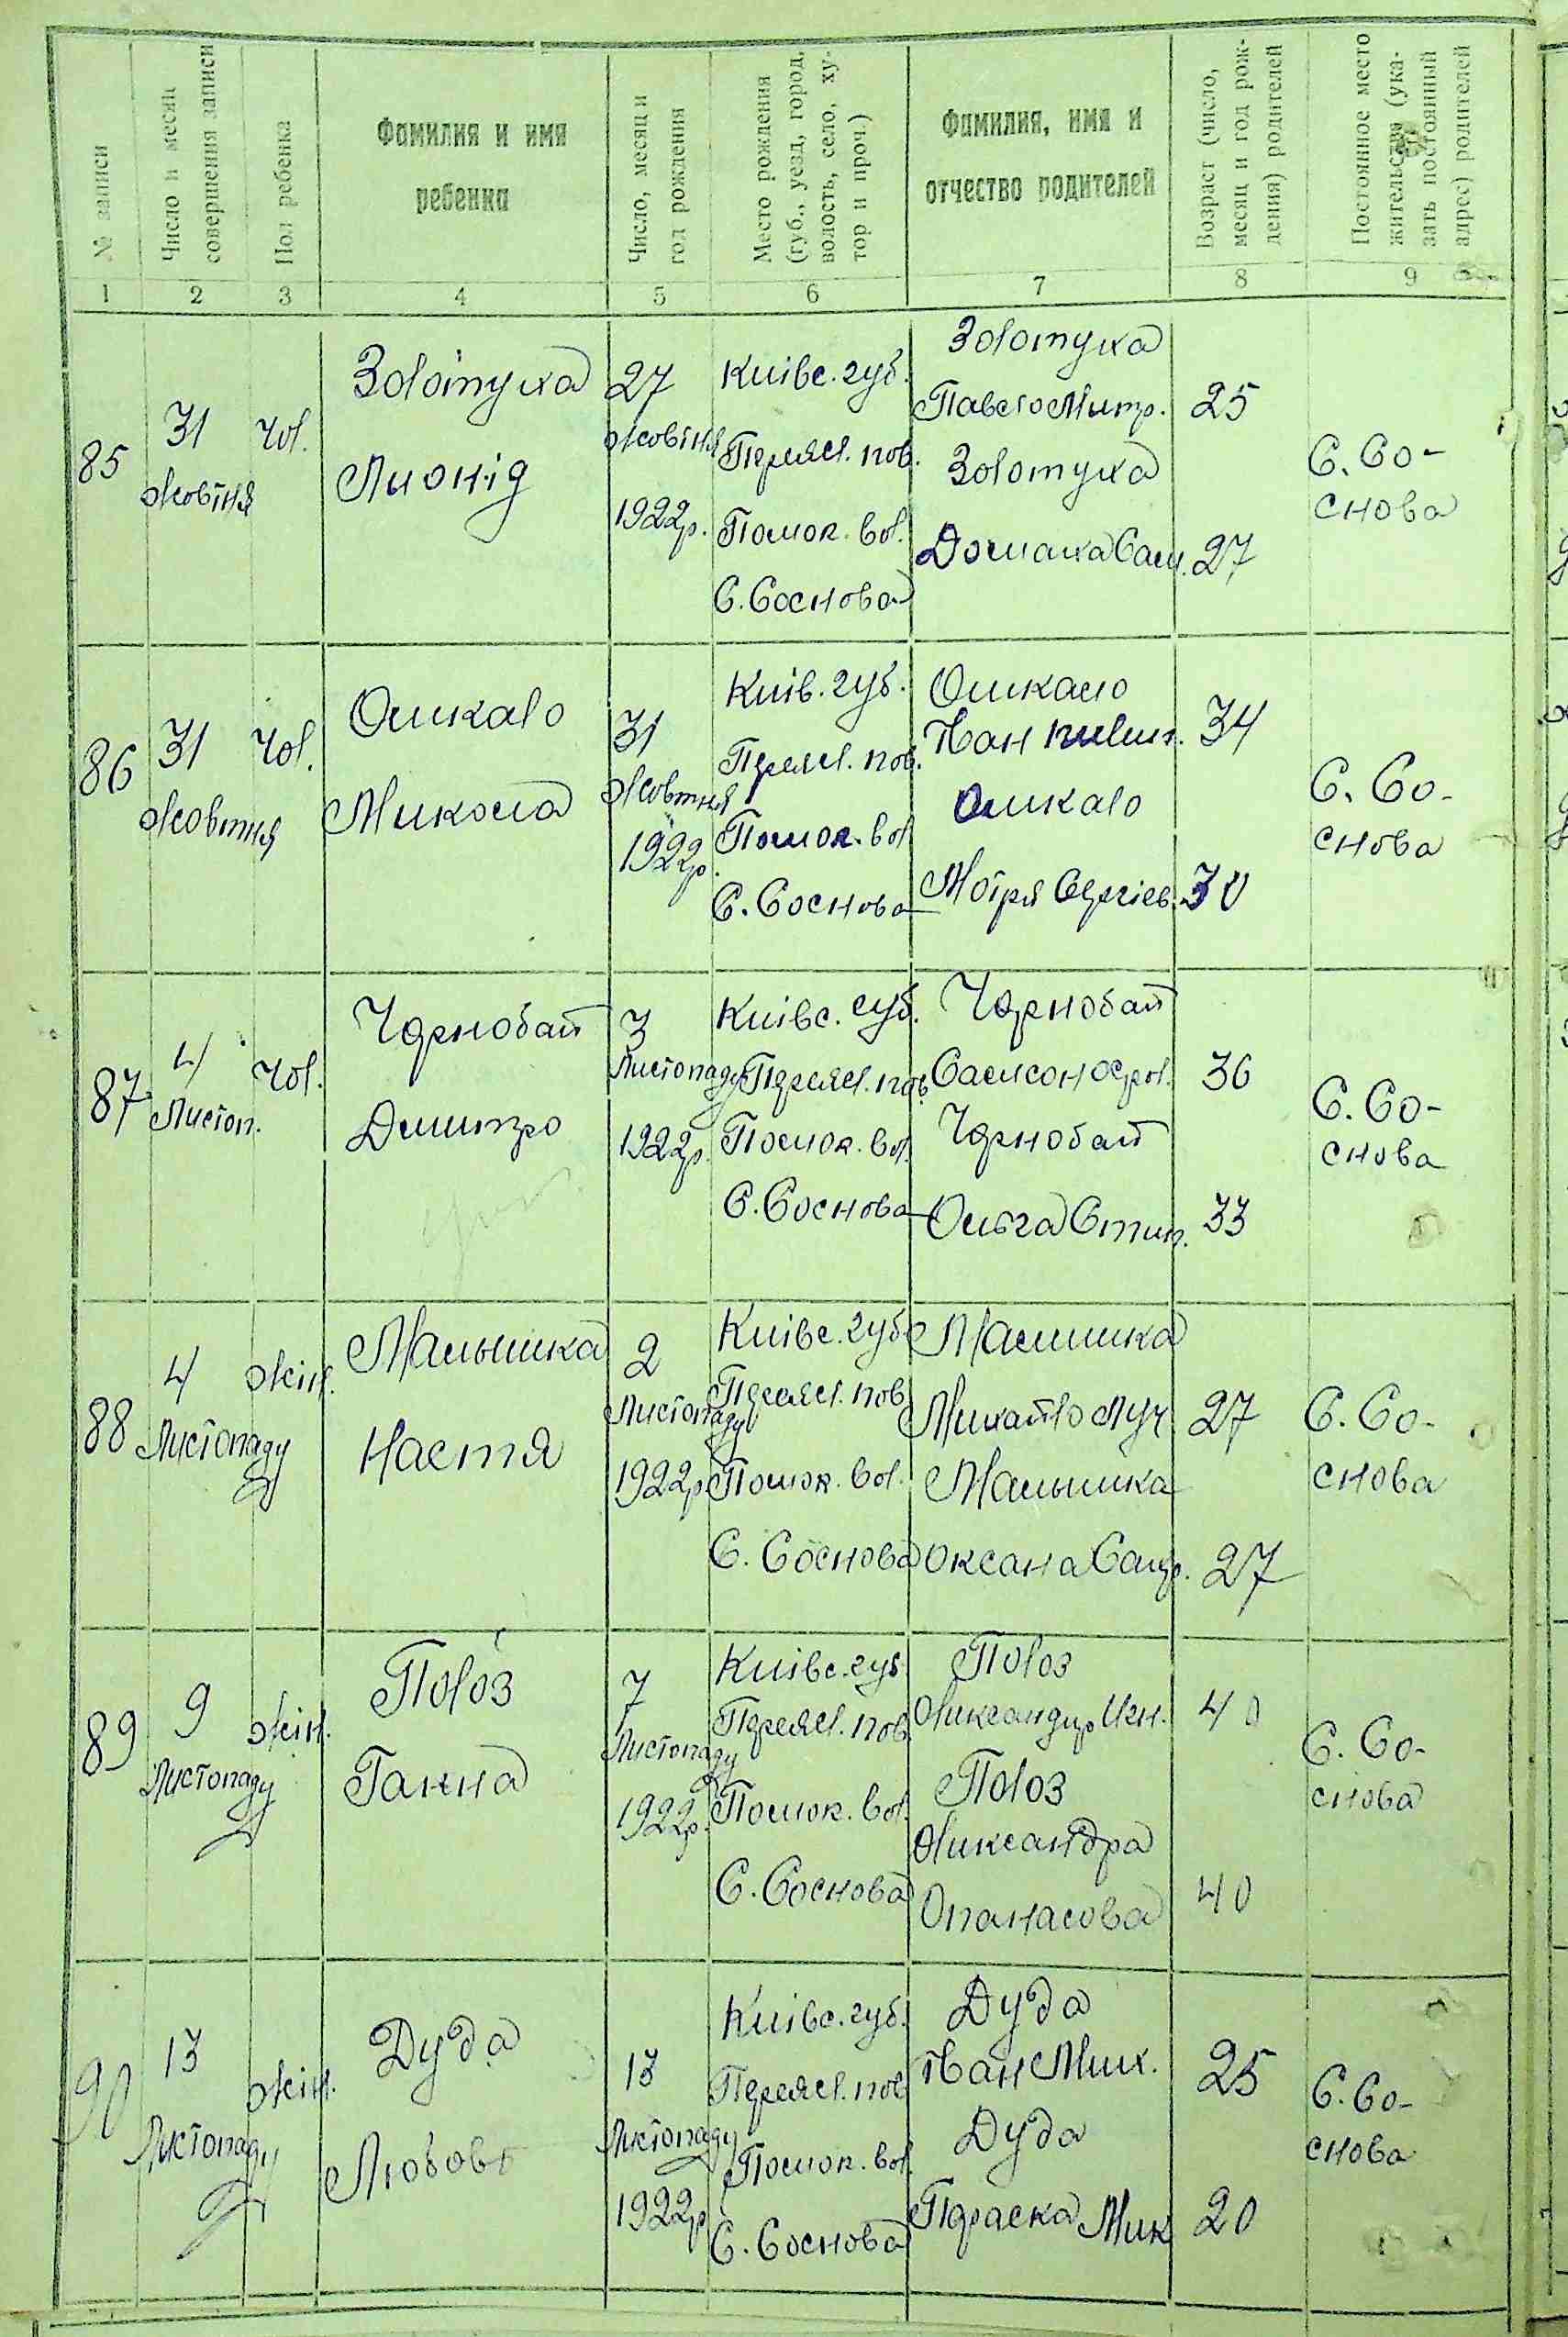 № записи
Число и месяц совершения записи
Пол ребенка
Фамилия и имя ребенка
Число, месяц и год рождения
Место рождения (губ., уезд, город, волость, село, хутор и проч.)
Фамилия, имя и отчество родителей
Возраст (число, месяц и год рождения) родителей
Постоянное место жительства (указать постоянный адрес) родителей
1 2 3 4 5 6 7 8 9
85
31
Жовтня
Чол.
Золотуха
Лионід
27
Жовтня
1922р.
Київс. губ.
Переясл. пов.
Помок. вол.
С. Соснова
Золотуха
Павло Митр.
Золотуха
Домаха Сам.
25
27
С. Со-
снова
86
31
Жовтня
Чол.
Ошкало
Микола
31
Жовтня
1922р.
Київ. губ.
Переясл. пов.
Помок. вол.
С. Соснова
Ошкало
Іван
Ошкало
Мотря Сергіев.
34
30
С. Со-
снова
87
4
Листоп.
Чол.
Чернобай
Дмитро
3
Листопаду
1922р.
Київс. губ.
Переясл. пов.
Помок. вол.
С. Соснова
Чернобай
Самсон
Чернобай
Ольга Стип.
36
33
С. Со-
снова
88
4
Листопаду
Жін.
Малышка
Настя
2
Листопаду
1922р
Київс. губ.
Переясл. пов.
Помок. вол.
С. Соснова
Малишка
Михайло Луч.
Малышка
Оксана
27
27
С. Со-
снова
89
9
Листопаду
Жін.
Полоз
Ганна
7
Листопаду
1922р.
Київс. губ.
Переясл. пов.
Помок. вол.
С. Соснова
Полоз
Оликсандир Игн.
Полоз
Оликсандра
Опанасова
40
40
С. Со-
снова
90
13
Листопаду
Жін.
Дуда
Любовь
13
Листопаду
1922р
Київс. губ.
Переясл. пов.
Помок. вол.
С. Соснова
Дуда
Іван Мих.
Дуда
Параска Мик
25
20
С. Со-
снова